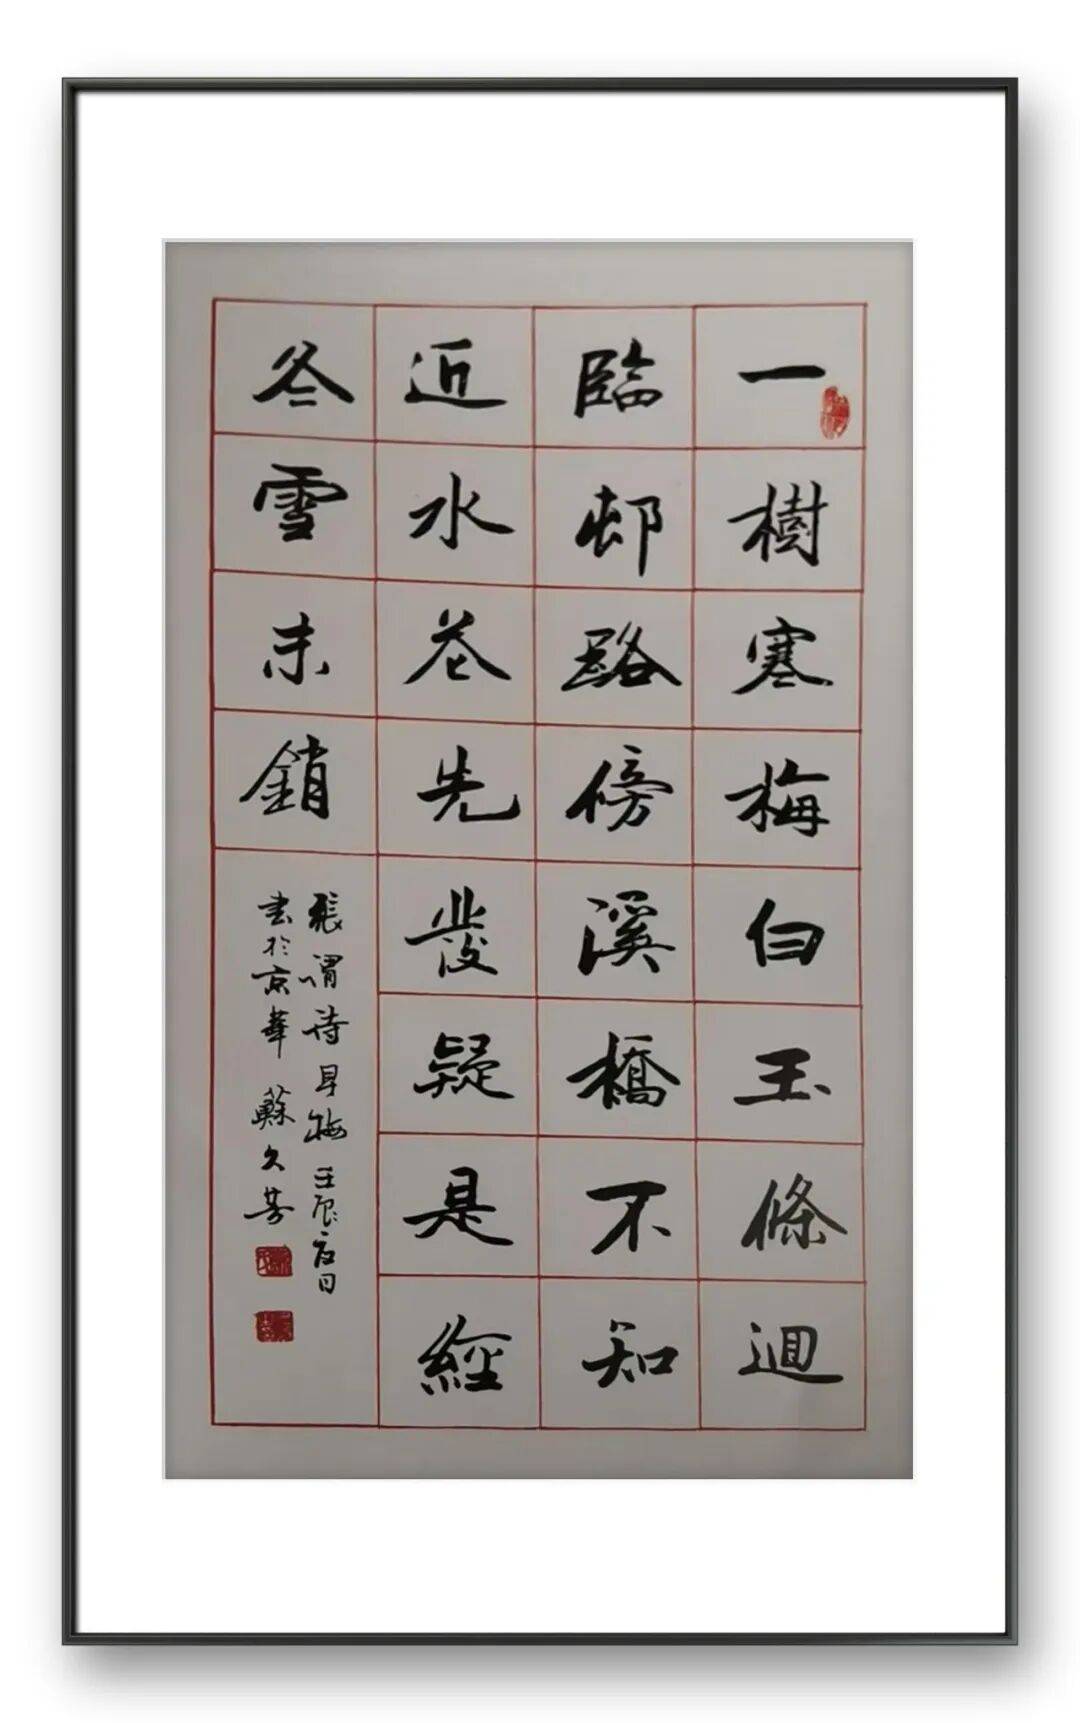 一樹寒梅白玉條迴
臨邨路傍溪橋不知
近水花先發疑是經
冬雪未銷
張謂詩早梅 壬辰夏日
書於京華 蘇久芳